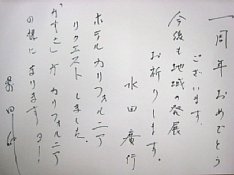 一周年おめでとう
ございます。
今後も地域の発展
お祈りします。
水田廣行
ホテルカリフォルニア
リクエストしました。
カリフォルニア
の様になります